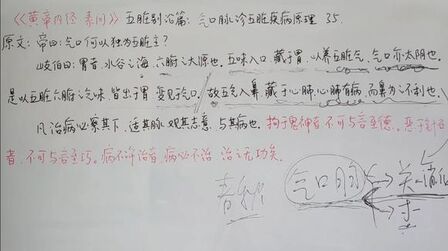 《黄帝内经·素问》五脏别论篇：气口脉诊五脏疾病原理 35.
原文：帝曰：气口何以独为五脏主？
岐伯曰：胃者，水谷之海，六腑之大源也。五味入口，藏于胃，以养五脏气，气口亦太阴也。
是以五脏六腑之气味，皆出于胃，变见于气口。故五气入鼻，藏于心肺，心肺有病，而鼻为之不利也。
凡治病必察其下，适其脉，观其志意，与其病也。拘于鬼神者，不可与言至德。恶于针石
者，不可与言至巧。病不许治者，病必不治，治之无功矣。
气口脉
关
寸